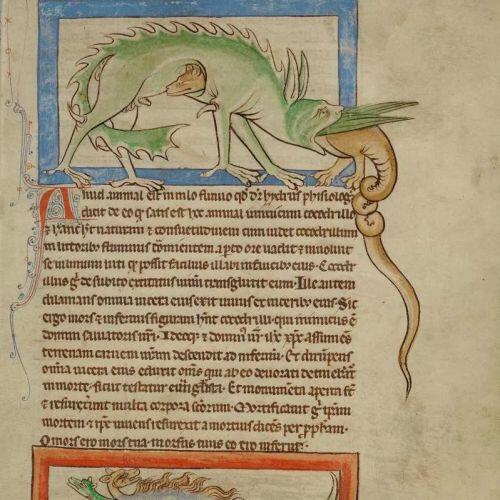 Aliud animal est in nilo fluuio qd dr hydrus phisiolog
dicit de eo q satis est hoc animal inimicum cocodrillo
& hanc ht naturam & consuetudinem cum uidet cocodrillum
in littoribus fluminis dormientem aperto ore uadit & inuoluit
se in limum luti quo possit facilius illabi in faucibus eius. Cocodr
illus g de subito excitatus uiuum transglutit eum. Ille autem
dilanians omnia uiscera eius exit uiuus ex uisceribus eius. Sic
ergo mors & infernus figuram hnt cocodrilli. qui inimicus e
domini saluatoris nri. Ideoq & dominus nr ihc xpc assumens
terrenam carnem nram descendit ad infernum. Et dirumpens
omnia uiscera eius eduxit omnes qui ab eo deuorati detinebant
in morte. sicut testatur euuglista. Et monumenta aperta st
& resurrexerunt multa corpora scorum. Mortificauit g ipsam
mortem & ipse uiuens resurrexit a mortuis dicens per ppham.
O mors ero mors tua. morsus tuus ero inferne.